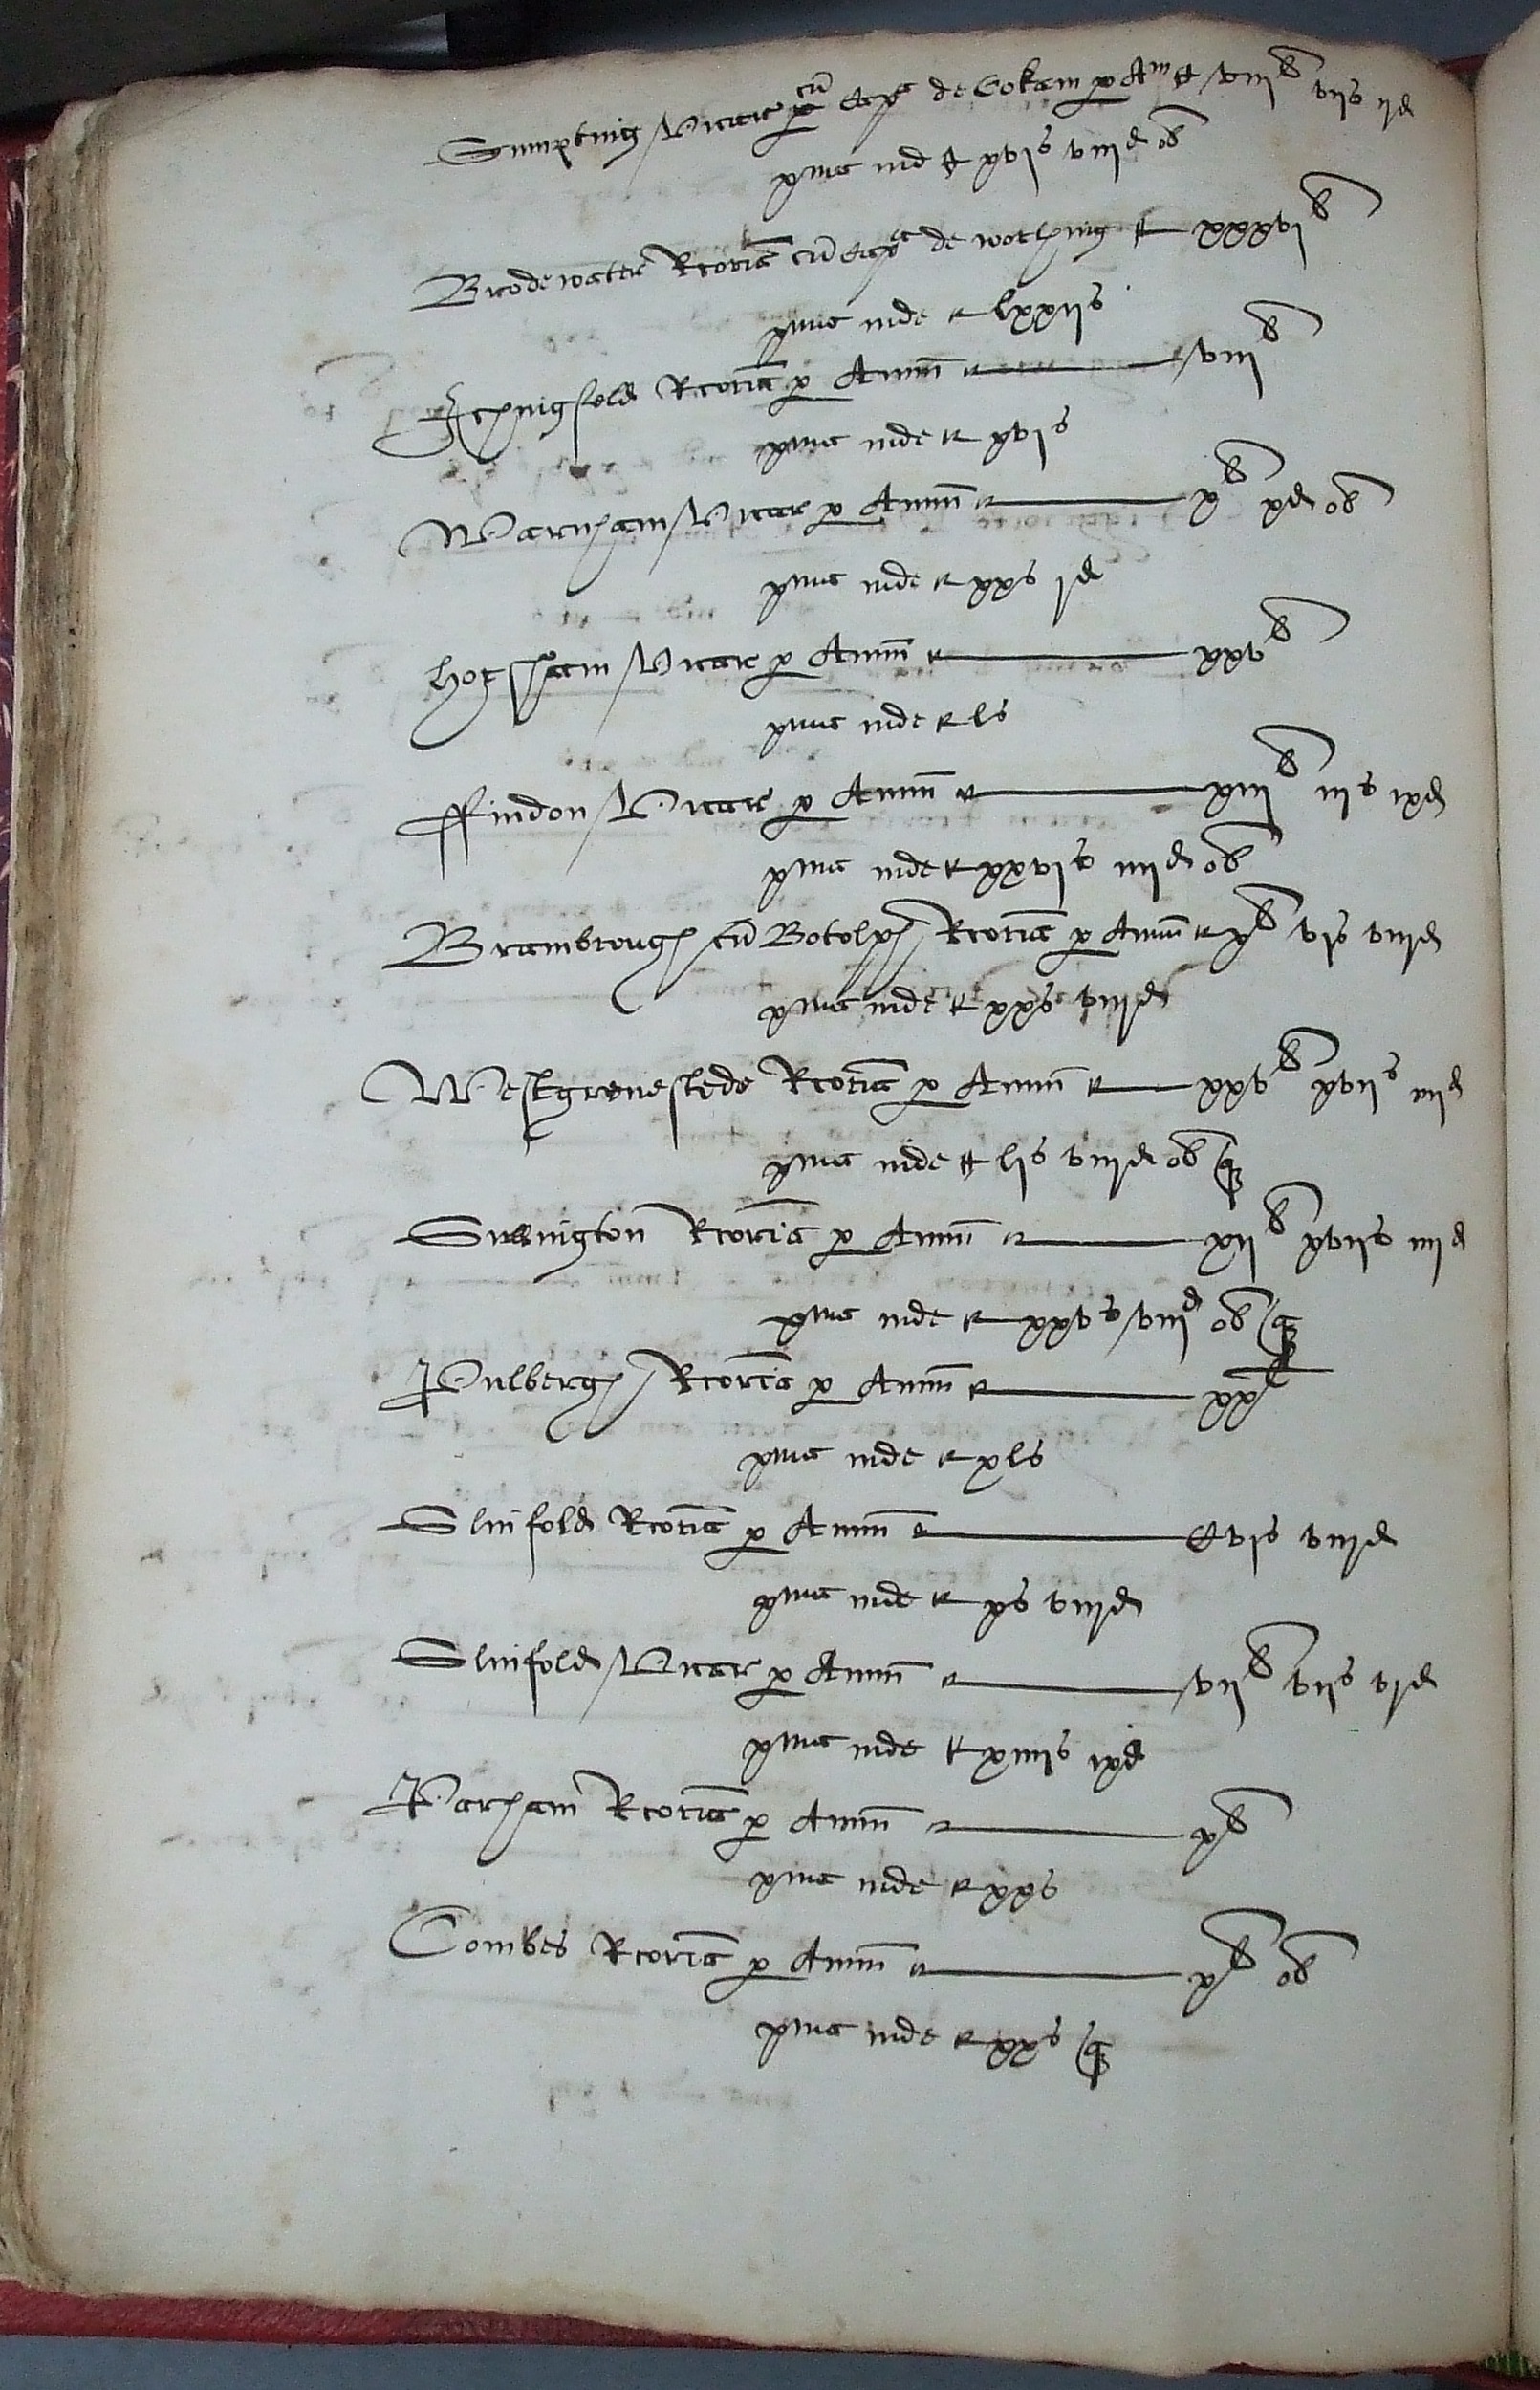 Sumpting Vicar cū cap̄ de Cokam p Am̄ viijˡⁱ vijs ijd
xma ind xvjs viijd ob
Brodewater Rcoria cū cap̄ de worthing xxxvjˡⁱ
xma inde lxxijs
Ichingfold Rcoria p Annū viijˡⁱ
xma inde xvjs
Warnham Vicar p Annū xˡⁱ xd ob
xma inde xxs jd
Horsham Vicar p Annū xxvˡⁱ
xma inde ls
ffindon Vicar p Annū xiijˡⁱ iijs ixd
xma inde xxvjs iiijd ob
Brambrough cū Botolph Rcoria p Annū xˡⁱ vjs viijd
xma inde xxs viijd
Westgrenestede Rcoria p Annū xxvˡⁱ xvijs iiijd
xma inde ljs viijd ob q
Sullington Rcoria p Annū xijˡⁱ xvijs iiijd
xma inde xxvs viijd ob q
Pulbergh Rcoria p Annū xxˡⁱ
xma inde xls
Slinfold Rcoria p Annū Cvjs viijd
xma inde xs viijd
Slinfold Vicar p Annū vijˡⁱ vijs vjd
xma inde xiiijs ixd
Parham Rcoria p Annū xˡⁱ
xma inde xxs
Combes Rcoria p Annū xˡⁱ ob
xma inde xxs q